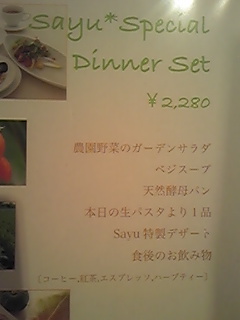 Sayu*Special
Dinner Set
¥2,280
農園野菜のガーデンサラダ
ベジスープ
天然酵母パン
本日の生パスタより1品
Sayu 特製デザート
食後のお飲み物
(コーヒー,紅茶,エスプレッソ,ハーブティー)